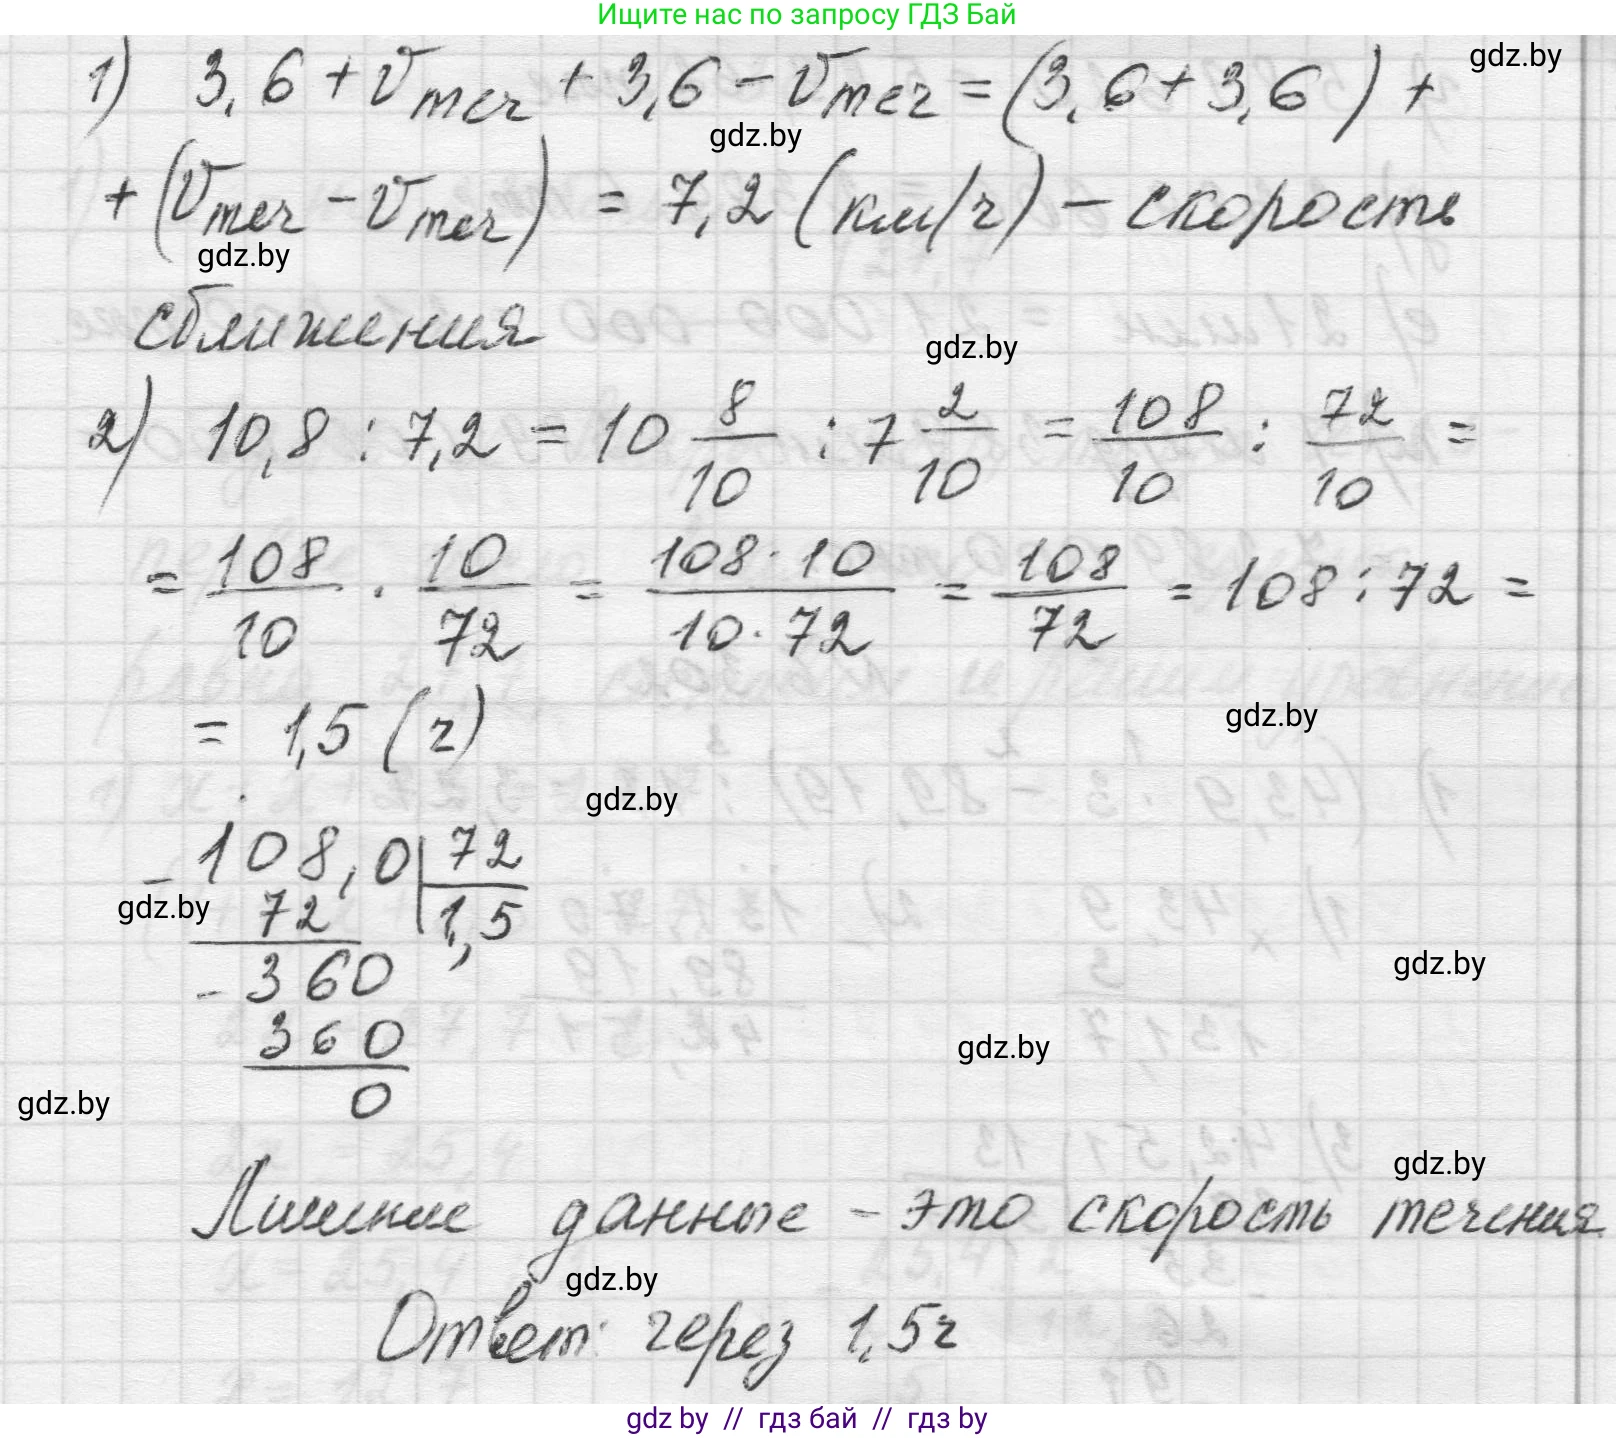 Ищите нас по запросу ГДЗ Бай
gdz.by
1) 3,6 + vтеч + 3,6 − vтеч = (3,6 + 3,6) +
gdz.by
+ (vтеч − vтеч) = 7,2 (км/ч) − скорость
gdz.by
сближения
gdz.by
2) 10,8 : 7,2 = 10 8/10 : 7 2/10 = 108/10 : 72/10 =
= 108/10 · 10/72 = (108 · 10)/(10 · 72) = 108/72 = 108 : 72 =
gdz.by
= 1,5 (ч)
gdz.by
− 108,0 | 72
gdz.by
72 | 1,5
− 360
gdz.by
360
gdz.by
0
gdz.by
gdz.by
Лишние данные – это скорость течения.
gdz.by
Ответ: через 1,5ч
gdz by // гдз бай // гдз by